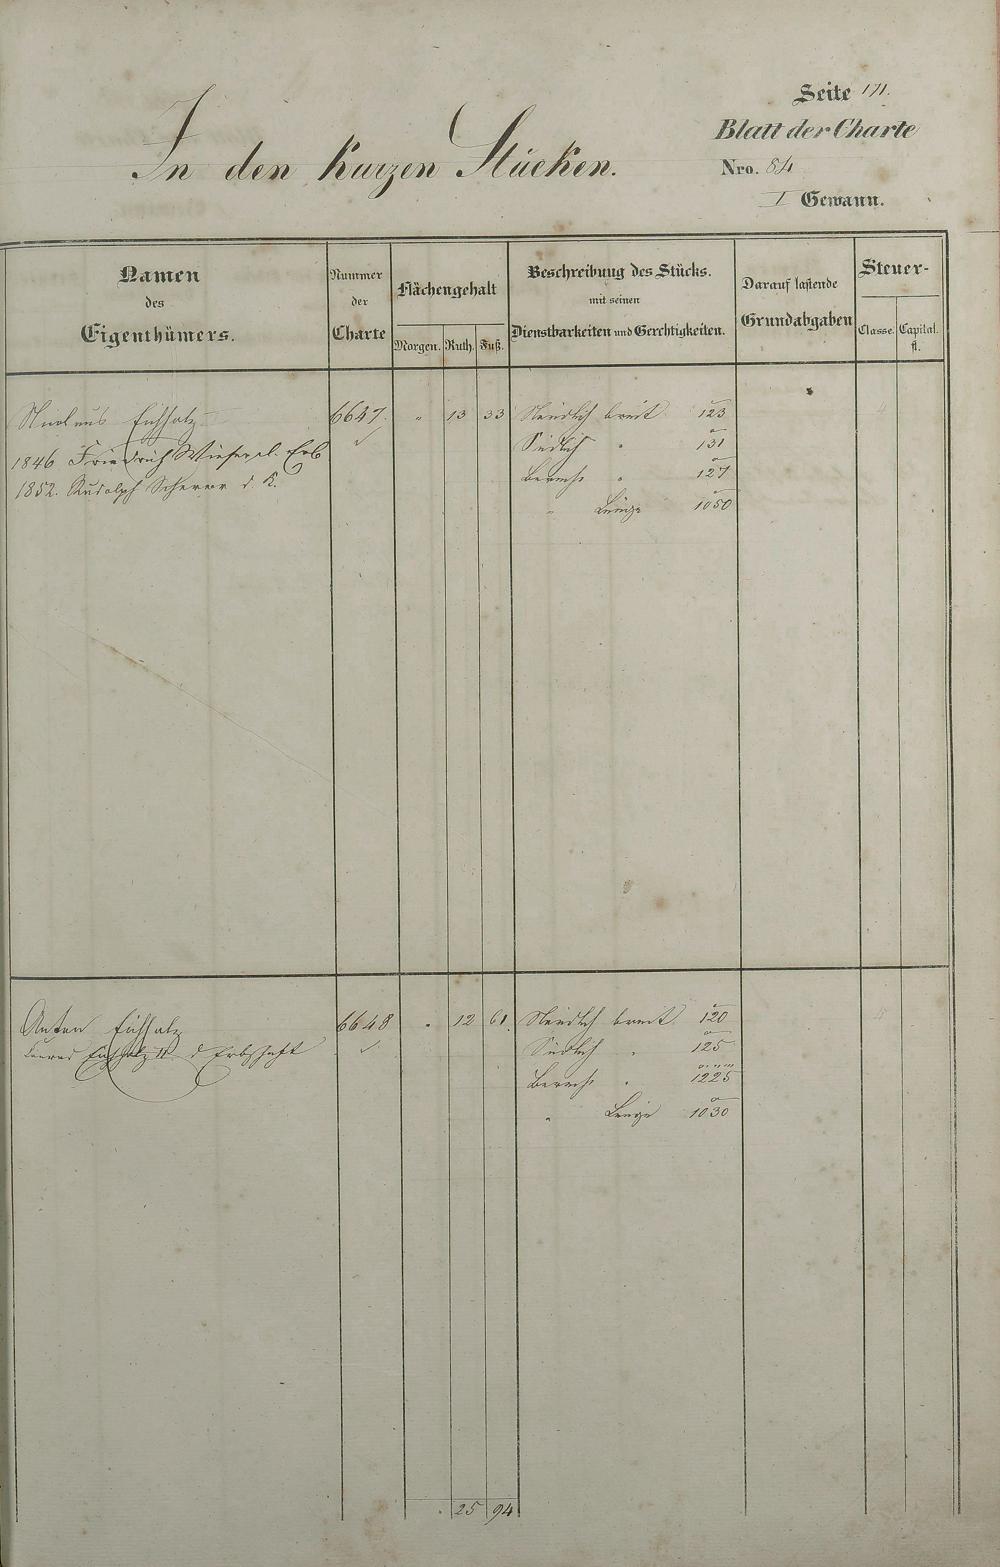 Seite 171.
In den kurzen Stücken.
Blatt der Charte
Nro. 84
I Gewann.
Namen
des
Eigenthümers.
Nummer
der
Charte
Flächengehalt
Morgen. Ruth. Fuß.
Beschreibung des Stücks.
mit seinen
Dienstbarkeiten und Gerchtigkeiten.
Darauf lastende
Grundabgaben
Steuer-
Classe. Capital.
fl.
Eichholz 6647. " 13 33 Nördlich breit 123
1846 Friedrich Erb Südlich " 131
1852. Rudolph Scherer d. K. Berech " 127
" Länge 1050
Anton Eichholz 6648 " 12 61. Nördlich breit 120
Eichholz d Erbschaft Südlich " 125
Berech " 1225
" Länge 1030
. 25 94